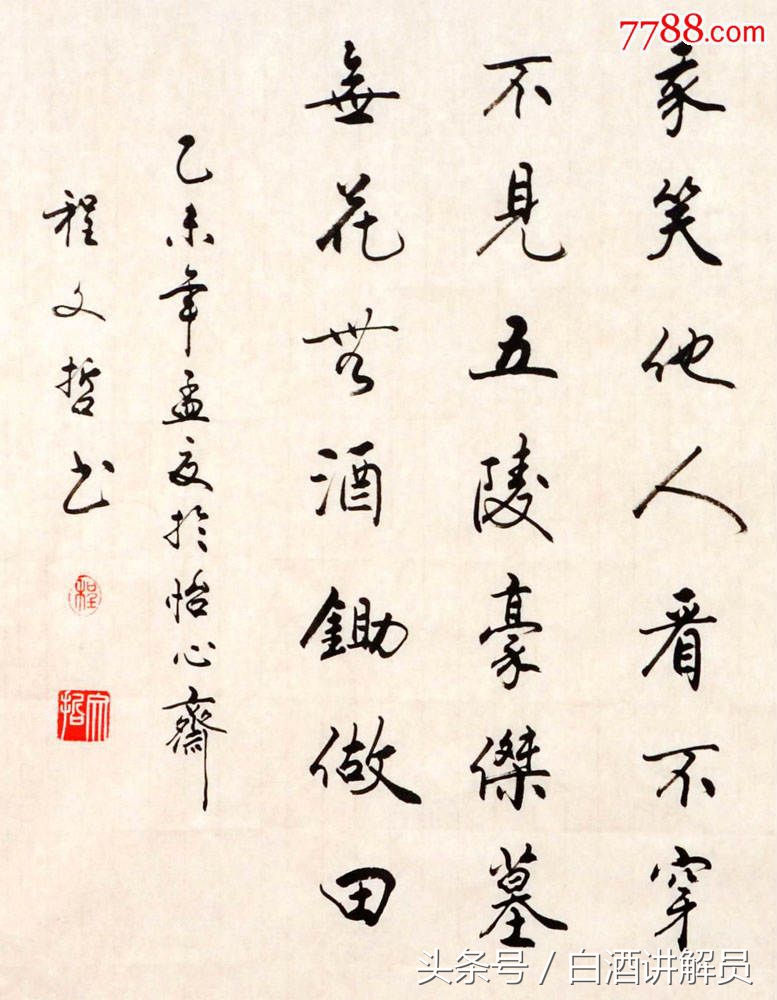 7788.com
我笑他人看不穿
不見五陵豪傑墓
無花無酒鋤做田
乙未年孟夏於怡心齋
程文哲书
程
文哲
头条号 / 白酒讲解员